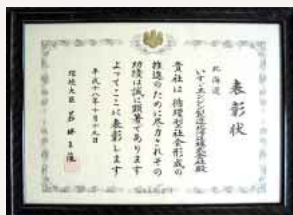 表彰状
北海道
いすゞエンジン製造北海道株式会社殿
貴社は循環型社会形成の
推進のために尽力されその
功績は誠に顕著であります
よってここに表彰します
平成十八年十月十九日
環境大臣 若林正俊